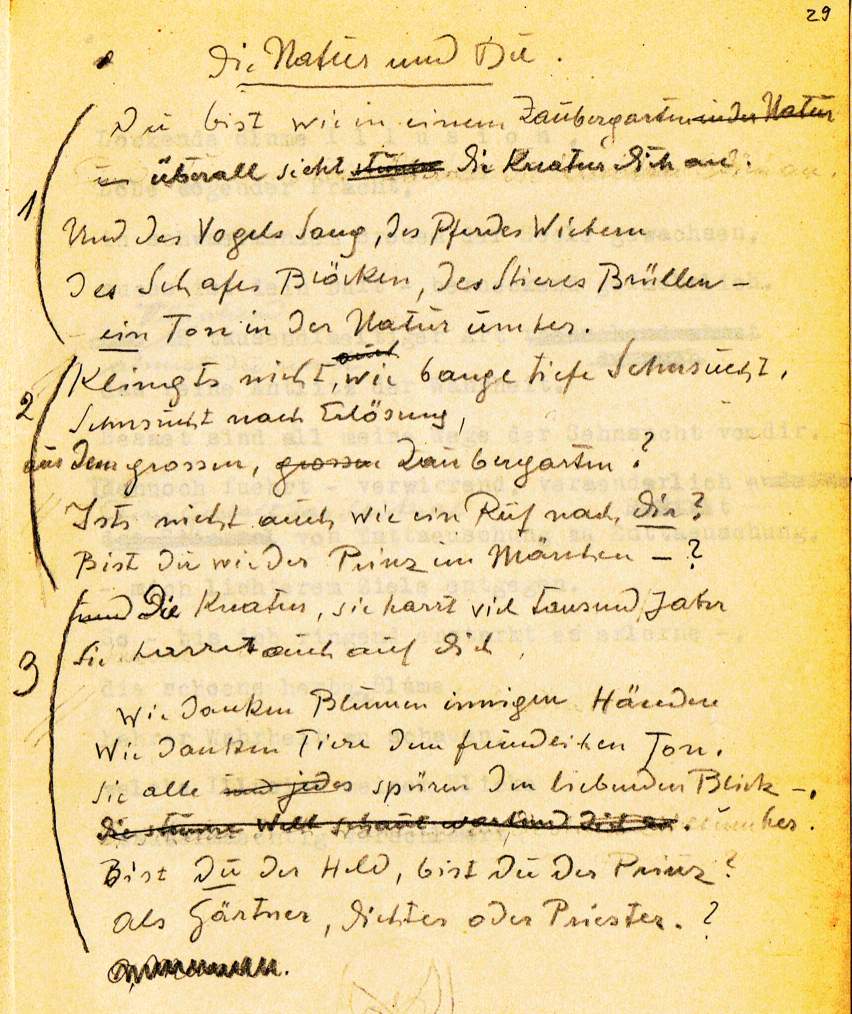 29
Die Natur und Du.
Du bist wie in einem Zaubergarten in der Natur
1
u überall sieht stumm die Kreatur dich an.
Und des Vogels Sang, des Pferdes Wiehern
des Schafes Blöcken, des Stieres Brüllen –
ein Ton in der Natur umher.
auch
Klingts nicht, wie bange tiefe Sehnsucht,
2
Sehnsucht nach Erlösung,
aus dem grossen, grossen Zaubergarten?
Ists nicht auch wie ein Ruf nach dir?
Bist du wie der Prinz im Märchen – ?
und Die Kreatur, sie harrt viel tausend Jahr
3
Sie harret auch auf dich,
Wie danken Blumen innigen Händen
Wie danken Tiere dem freundlichen Ton.
Sie alle und jedes spüren den liebenden Blick –.
Die stumme Welt schaut wartend dich an. umher.
Bist Du der Held, bist Du der Prinz?
Als Gärtner, Dichter oder Priester.?